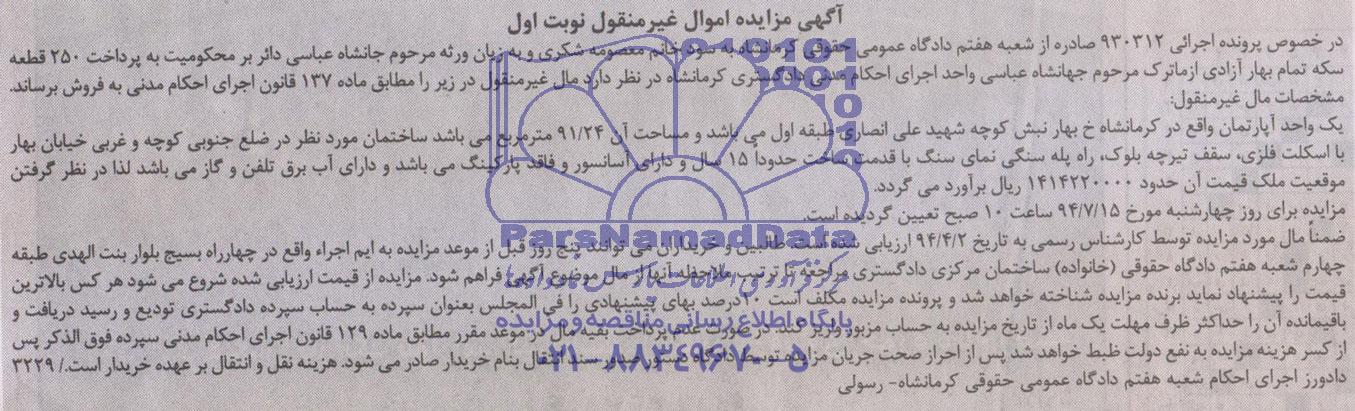 آگهی مزایده اموال غیرمنقول نوبت اول
در خصوص پرونده اجرائی ۹۳۰۳۱۲ صادره از شعبه هفتم دادگاه عمومی حقوقی کرمانشاه به سود خانم معصومه شکری و به زیان ورثه مرحوم جانشاه عباسی دائر بر محکومیت به پرداخت ۲۵۰ قطعه
سکه تمام بهار آزادی ازماترک مرحوم جهانشاه عباسی واحد اجرای احکام مدنی دادگستری کرمانشاه در نظر دارد مال غیرمنقول در زیر را مطابق ماده ۱۳۷ قانون اجرای احکام مدنی به فروش برساند.
مشخصات مال غیرمنقول:
یک واحد آپارتمان واقع در کرمانشاه خ بهار نبش کوچه شهید علی انصاری طبقه اول می باشد و مساحت آن ۹۱/۲۴ مترمربع می باشد ساختمان مورد نظر در ضلع جنوبی کوچه و غربی خیابان بهار
با اسکلت فلزی، سقف تیرچه بلوک، راه پله سنگی نمای سنگ با قدمت ساخت حدوداً ۱۵ سال و دارای آسانسور و فاقد پارکینگ می باشد و دارای آب برق تلفن و گاز می باشد لذا در نظر گرفتن
موقعیت ملک قیمت آن حدود ۱۴۱۴۲۲۰۰۰۰ ریال برآورد می گردد.
مزایده برای روز چهارشنبه مورخ ۹۴/۷/۱۵ ساعت ۱۰ صبح تعیین گردیده است.
ضمناً مال مورد مزایده توسط کارشناس رسمی به تاریخ ۹۴/۴/۲ ارزیابی شده است. طالبین و خریداران می توانند پنج روز قبل از موعد مزایده به ایم اجراء واقع در چهارراه بسیج بلوار بنت الهدی طبقه
چهارم شعبه هفتم دادگاه حقوقی (خانواده) ساختمان مرکزی دادگستری مراجعه تا ترتیب ملاحظه آنها از مال موضوع آگهی فراهم شود. مزایده از قیمت ارزیابی شده شروع می شود هر کس بالاترین
قیمت را پیشنهاد نماید برنده مزایده شناخته خواهد شد و پرونده مزایده مکلف است ۱۰درصد بهای پیشنهادی را فی المجلس بعنوان سپرده به حساب سپرده دادگستری تودیع و رسید دریافت و
باقیمانده آن را حداکثر ظرف مهلت یک ماه از تاریخ مزایده به حساب مزبور واریز کند. در صورت عدم پرداخت بقیه مال در موعد مقرر مطابق ماده ۱۲۹ قانون اجرای احکام مدنی سپرده فوق الذکر پس
از کسر هزینه مزایده به نفع دولت ظبط خواهد شد پس از احراز صحت جریان مزایده توسط دادگاه دستور صدور سند انتقال بنام خریدار صادر می شود. هزینه نقل و انتقال بر عهده خریدار است./ ۳۲۲۹
دادورز اجرای احکام شعبه هفتم دادگاه عمومی حقوقی کرمانشاه- رسولی
ParsNamadData
پایگاه اطلاع رسانی مناقصه و مزایده
۰۲۱-۸۸۳۴۹۶۷۰-۵